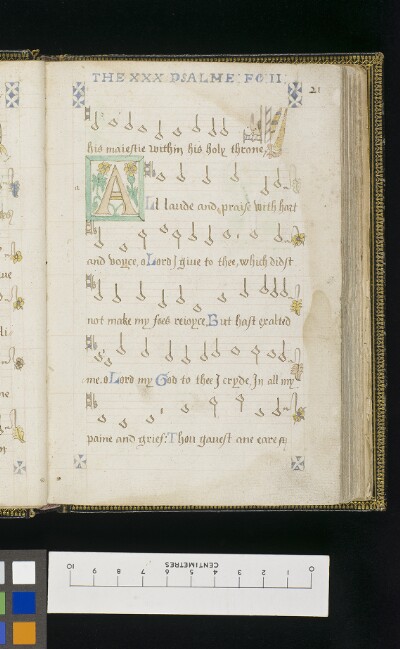 THE XXX PSALME: FO II:
21
his maiestie within his holy throne,
All laude and praise with hart
and voyce, o Lord J giue to thee, which didst
not make my foes reioyce, But hast exalted
me. o Lord my God to thee J cryde, In all my
paine and grief: Thou gauest ane eare &
0 1 2 3 4 5 6 7 8 9 10
CENTIMETRES